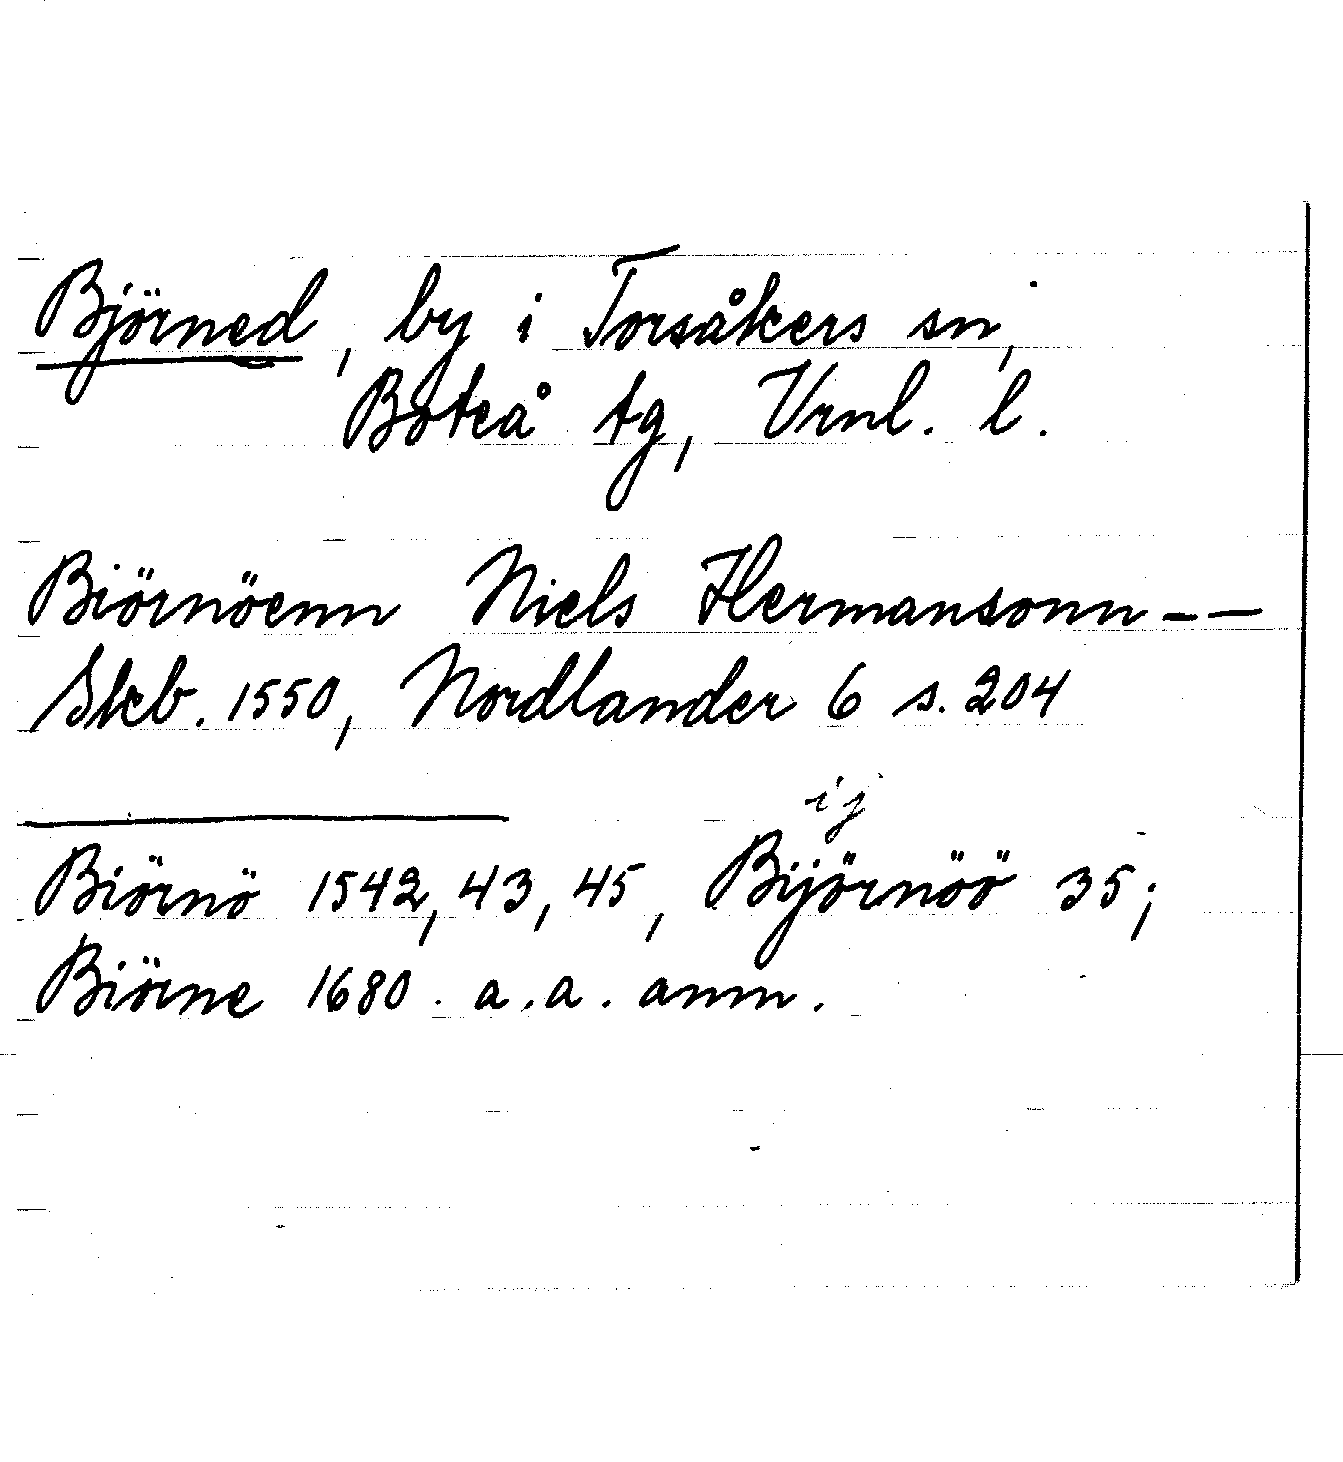 Björned, by i Torsåkers sn,
Boteå tg, Vrnl. l.
Biörnöenn Niels Hermansonn --
Skb. 1550, Nordlander 6 s. 204
ij
Biörnö 1542, 43, 45, Bijörnöö 35;
Biörne 1680. a.a. anm.